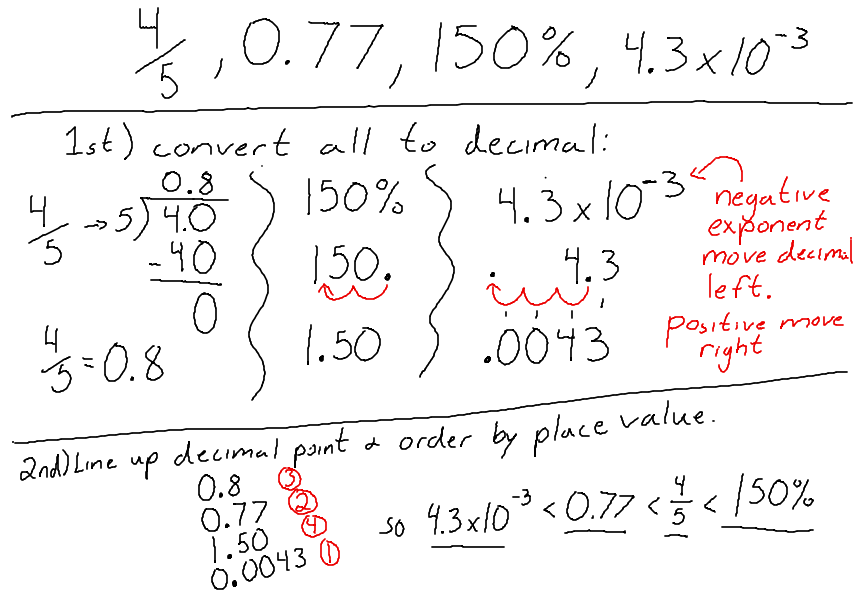 4/5, 0.77, 150%, 4.3x10⁻³
1st) convert all to decimal:
4/5 → 5)4.0
0.8
-40
0
4/5 = 0.8
150%
150.
1.50
4.3x10⁻³
. 4.3
.0043
negative
exponent
move decimal
left.
positive move
right
2nd) Line up decimal point & order by place value.
0.8 ③
0.77 ②
1.50 ④
0.0043 ①
so 4.3x10⁻³ < 0.77 < 4/5 < 150%